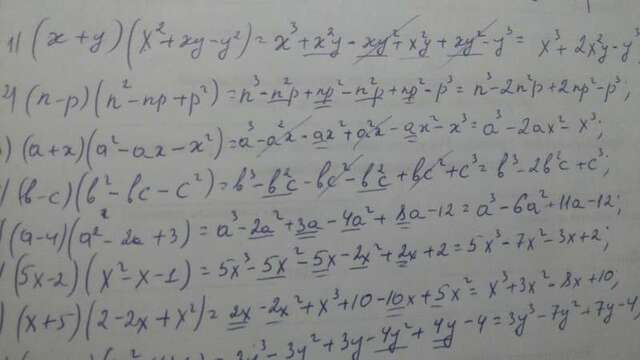 1) (x+y)(x²+xy-y²)=x³+x²y-xy²+x²y+xy²-y³= x³+2x²y-y³
2) (n-p)(n²-np+p²)=n³-n²p+np²-n²p+np²-p³=n³-2n²p+2np²-p³;
) (a+x)(a²-ax-x²)=a³-a²x-ax²+a²x-ax²-x³=a³-2ax²-x³;
) (b-c)(b²-bc-c²)=b³-b²c-bc²-b²c+bc²+c³=b³-2b²c+c³;
(a-4)(a²-2a+3)=a³-2a²+3a-4a²+8a-12=a³-6a²+11a-12;
) (5x-2)(x²-x-1)=5x³-5x²-5x-2x²+2x+2=5x³-7x²-3x+2;
) (x+5)(2-2x+x²)=2x-2x²+x³+10-10x+5x²=x³+3x²-8x+10;
-3y²+3y-4y²+4y-4=3y³-7y²+7y-4